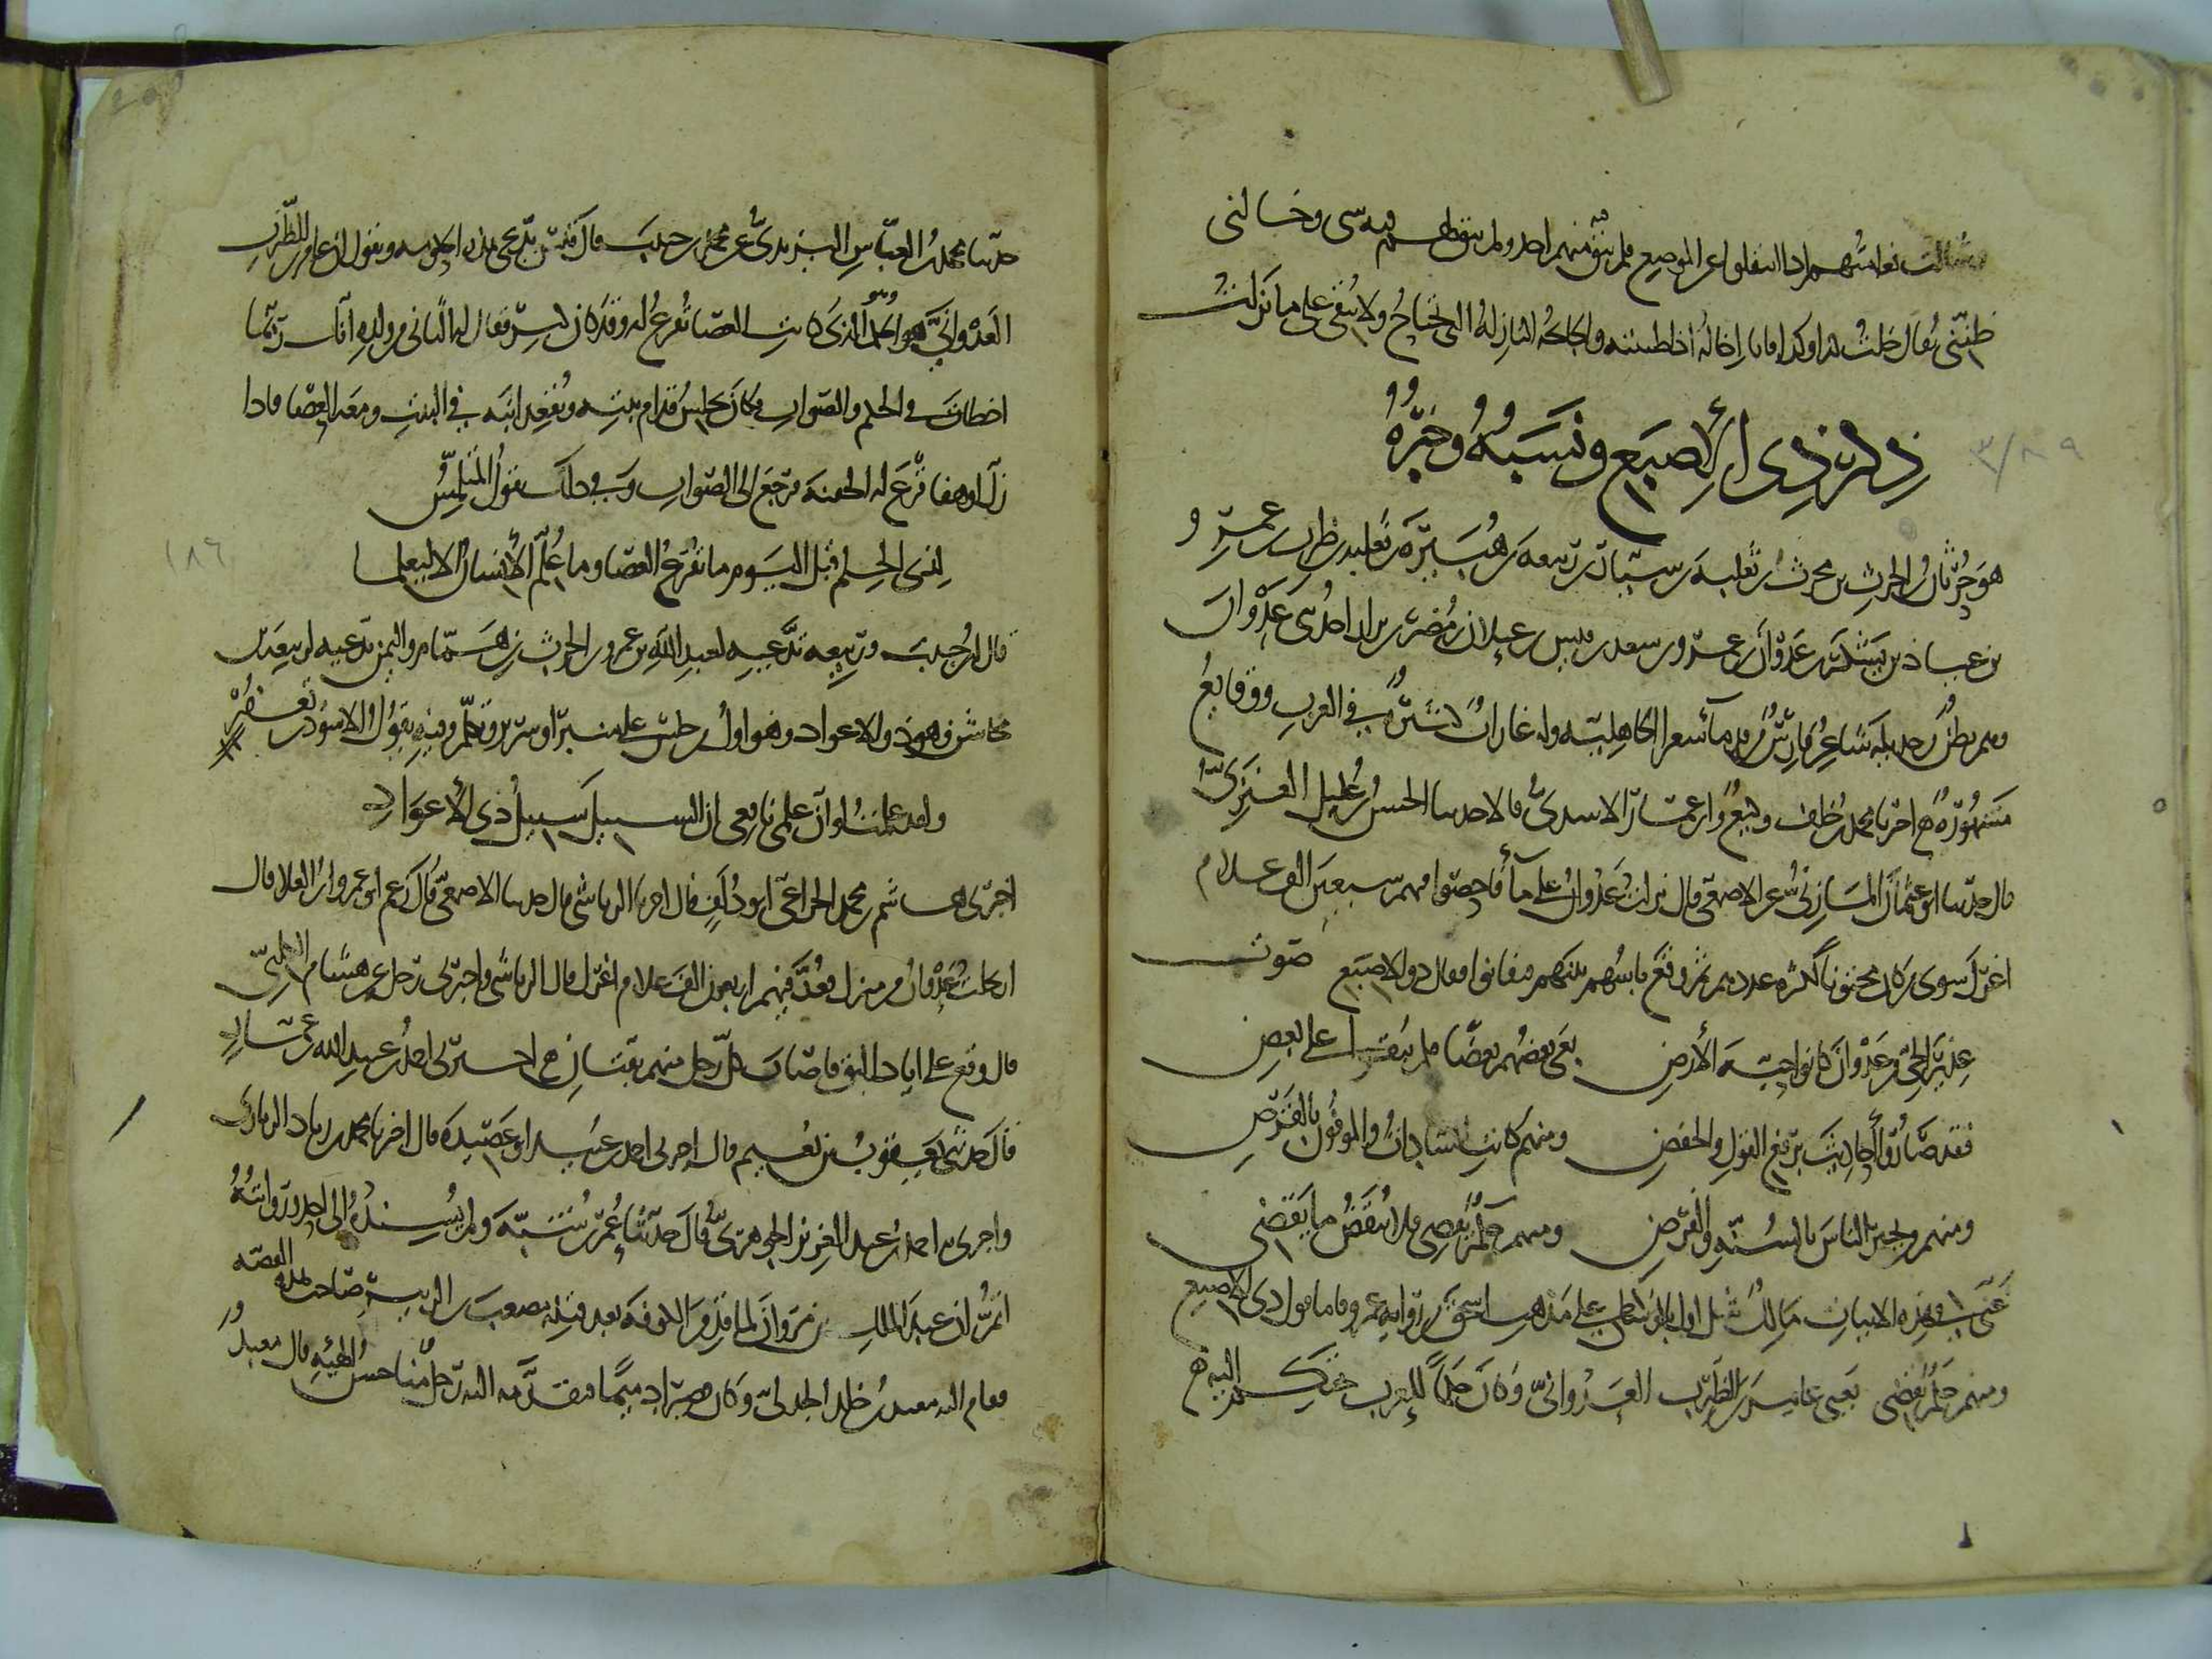 وشالت نعامتهم اذا انتقلوا عن الموضع فلم يبق منهم احد ولم يبق لهم فيه شى وخالنى
ظننى يقال خلت كذا وكذا فانا اخاله اذا ظننته والجائحة النازلة التى تجتاح ولا تبقى على ما نزلت
ذكر ذى الاصبع ونسبه وخبره
٣/٨٠٩
هو حرثان بن الحرث بن محرث بن ثعلبة بن سيار بن ربيعة بن هبيرة بن ثعلبة بن ظرب بن عمرو
بن عباذ بن يشكر بن عدوان بن عمرو بن سعد بن قيس بن عيلان بن مضر بن نزار احد بنى عدوان
وهم بطن من جديلة شاعر فارس من قدماء شعراء الجاهلية وله غارات كثيرة فى العرب ووقايع
مشهورة اخبرنا محمد بن خلف وكيع وابن عمار الاسدى قالا حدثنا الحسن بن عليل العنزى
قال حدثنا ابو عثمان المازنى عن الاصمعى قال نزلت عدوان على ماء فاحصوا فيهم سبعين الف غلام
اغرل سوى من كان مختونا لكثرة عددهم ثم وقع بأسهم بينهم فتفانوا فقال ذو الاصبع صوت
عذير الحى من عدوان كانوا حية الأرض بغى بعضهم بعضا فلم يبقوا على بعض
فقد صاروا أحاديث برفع القول والخفض ومنهم كانت السادات والموفون بالقرض
ومنهم من يجيز الناس بالسنة والفرض ومنهم حكم يقضى فلا ينقض ما يقضى
غنى فى هذه الابيات مالك ثقيل اول بالبنصر على مذهب اسحق من رواية عمرو فاما قول ذى الاصبع
ومنهم حكم يقضى يعنى عامر بن الظرب العدوانى وكان حكما للعرب تحتكم اليه
حدثنا محمد بن العباس اليزيدى عن محمد بن حبيب قال قيس تدعى هذه الحكومة وتقول ان عامر بن الظرب
العدوانى هو الحكم الذى كانت العصا تقرع له وقد كان كبر فقال له الثانى من ولده انك ربما
اخطأت فى الحكم والصواب فكان يجلس قدام بيته ويقعد ابنه فى البيت ومعه العصا فاذا
زل او هفا قرع له الجفنة فرجع الى الصواب وفى ذلك يقول المتلمس
لذى الحلم قبل اليوم ما تقرع العصا وما علم الأنسان الا ليعلما
١٨٦
قال ابن حبيب وربيعة تدعيه لعبد الله بن عمرو بن الحرث بن همام واليمن تدعيه لربيعة بن
مخاشن وهو ذو الاعواد وهو اول من جلس على منبر او سرير وتكلم وفيه يقول الاسود بن يعفر
ولقد علمت لو ان علمى نافعى ان السبيل سبيل ذى الأعواد
اخبرنى هاشم بن محمد الخزاعى ابو دلف قال اخبرنا الرياشى قال حدثنا الاصمعى قال زعم ابو عمرو بن العلا قال
ارتحلت عدوان من منزل فعد فيهم اربعون الف غلام اغرل قال الرياشى واخبرنى رجل عن هشام الكلبى
قال وقع على اياد البق فاصاب كل رجل منهم بقتان اخبرنى احمد بن عبيد الله بن عمار
قال حدثنى يعقوب بن نعيم قال اخبرنى احمد بن عبيد ابو عصيدة قال اخبرنا محمد بن زياد الزيادى
واخبرنى احمد بن عبد العزيز الجوهرى قال حدثنا عمر بن شبة ولم يسنده الى احد وروايته
اتم ان عبد الملك بن مروان لما قدم الكوفة بعد قتله مصعب بن الزبير صاحب هذه القصة
فقام اليه معبد بن خلد الجدلى وكان قصيرا دميما فتقدمه اليه رجل منا حسن الهيئة قال معبد